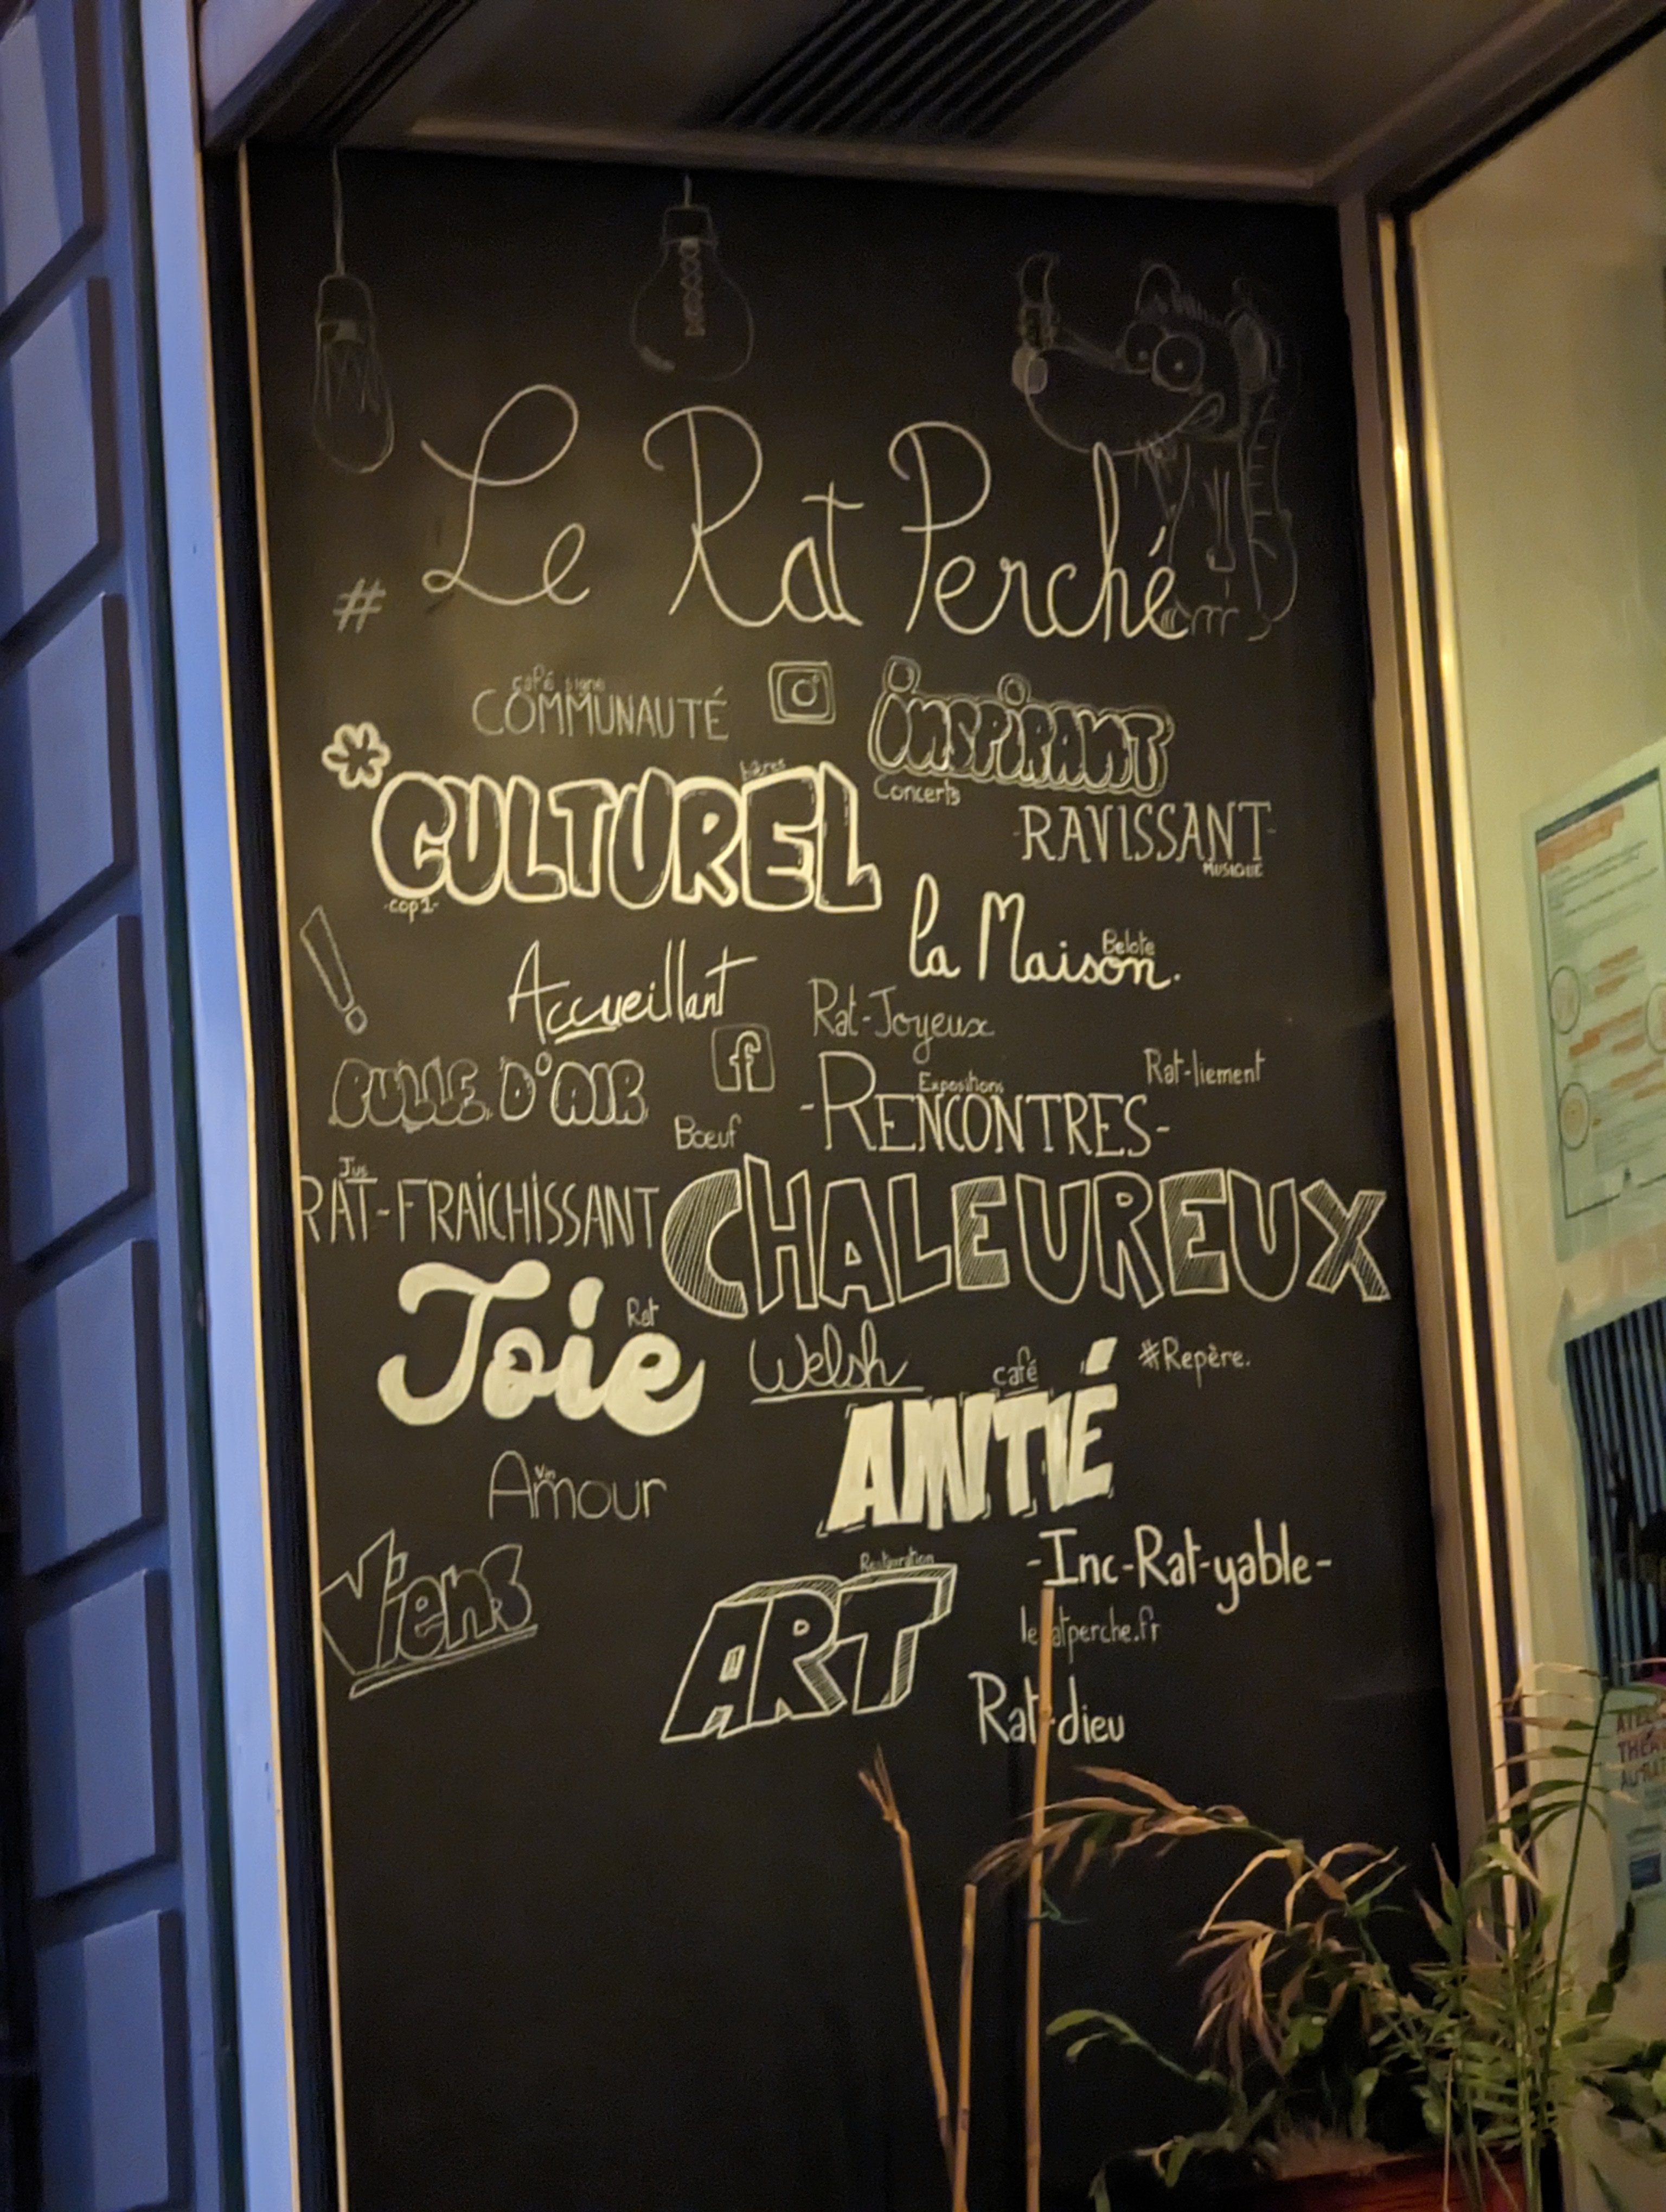 # Le Rat Perché
café signe
COMMUNAUTÉ
INSPIRANT
bières
CULTUREL
Concerts
-RAVISSANT-
MUSIQUE
-cop1-
la Maison.
Belote
Accueillant
Rat-Joyeux
BULLE D'AIR
f
Rat-liement
Expositions
-RENCONTRES-
Bœuf
Jus
RAT-FRAiCHiSSANT
CHALEUREUX
Joie
Rat
Welsh
café
#Repère.
AMITIÉ
Vin
Amour
Viens
Restauration
ART
-Inc-Rat-yable-
leratperche.fr
Rat-dieu